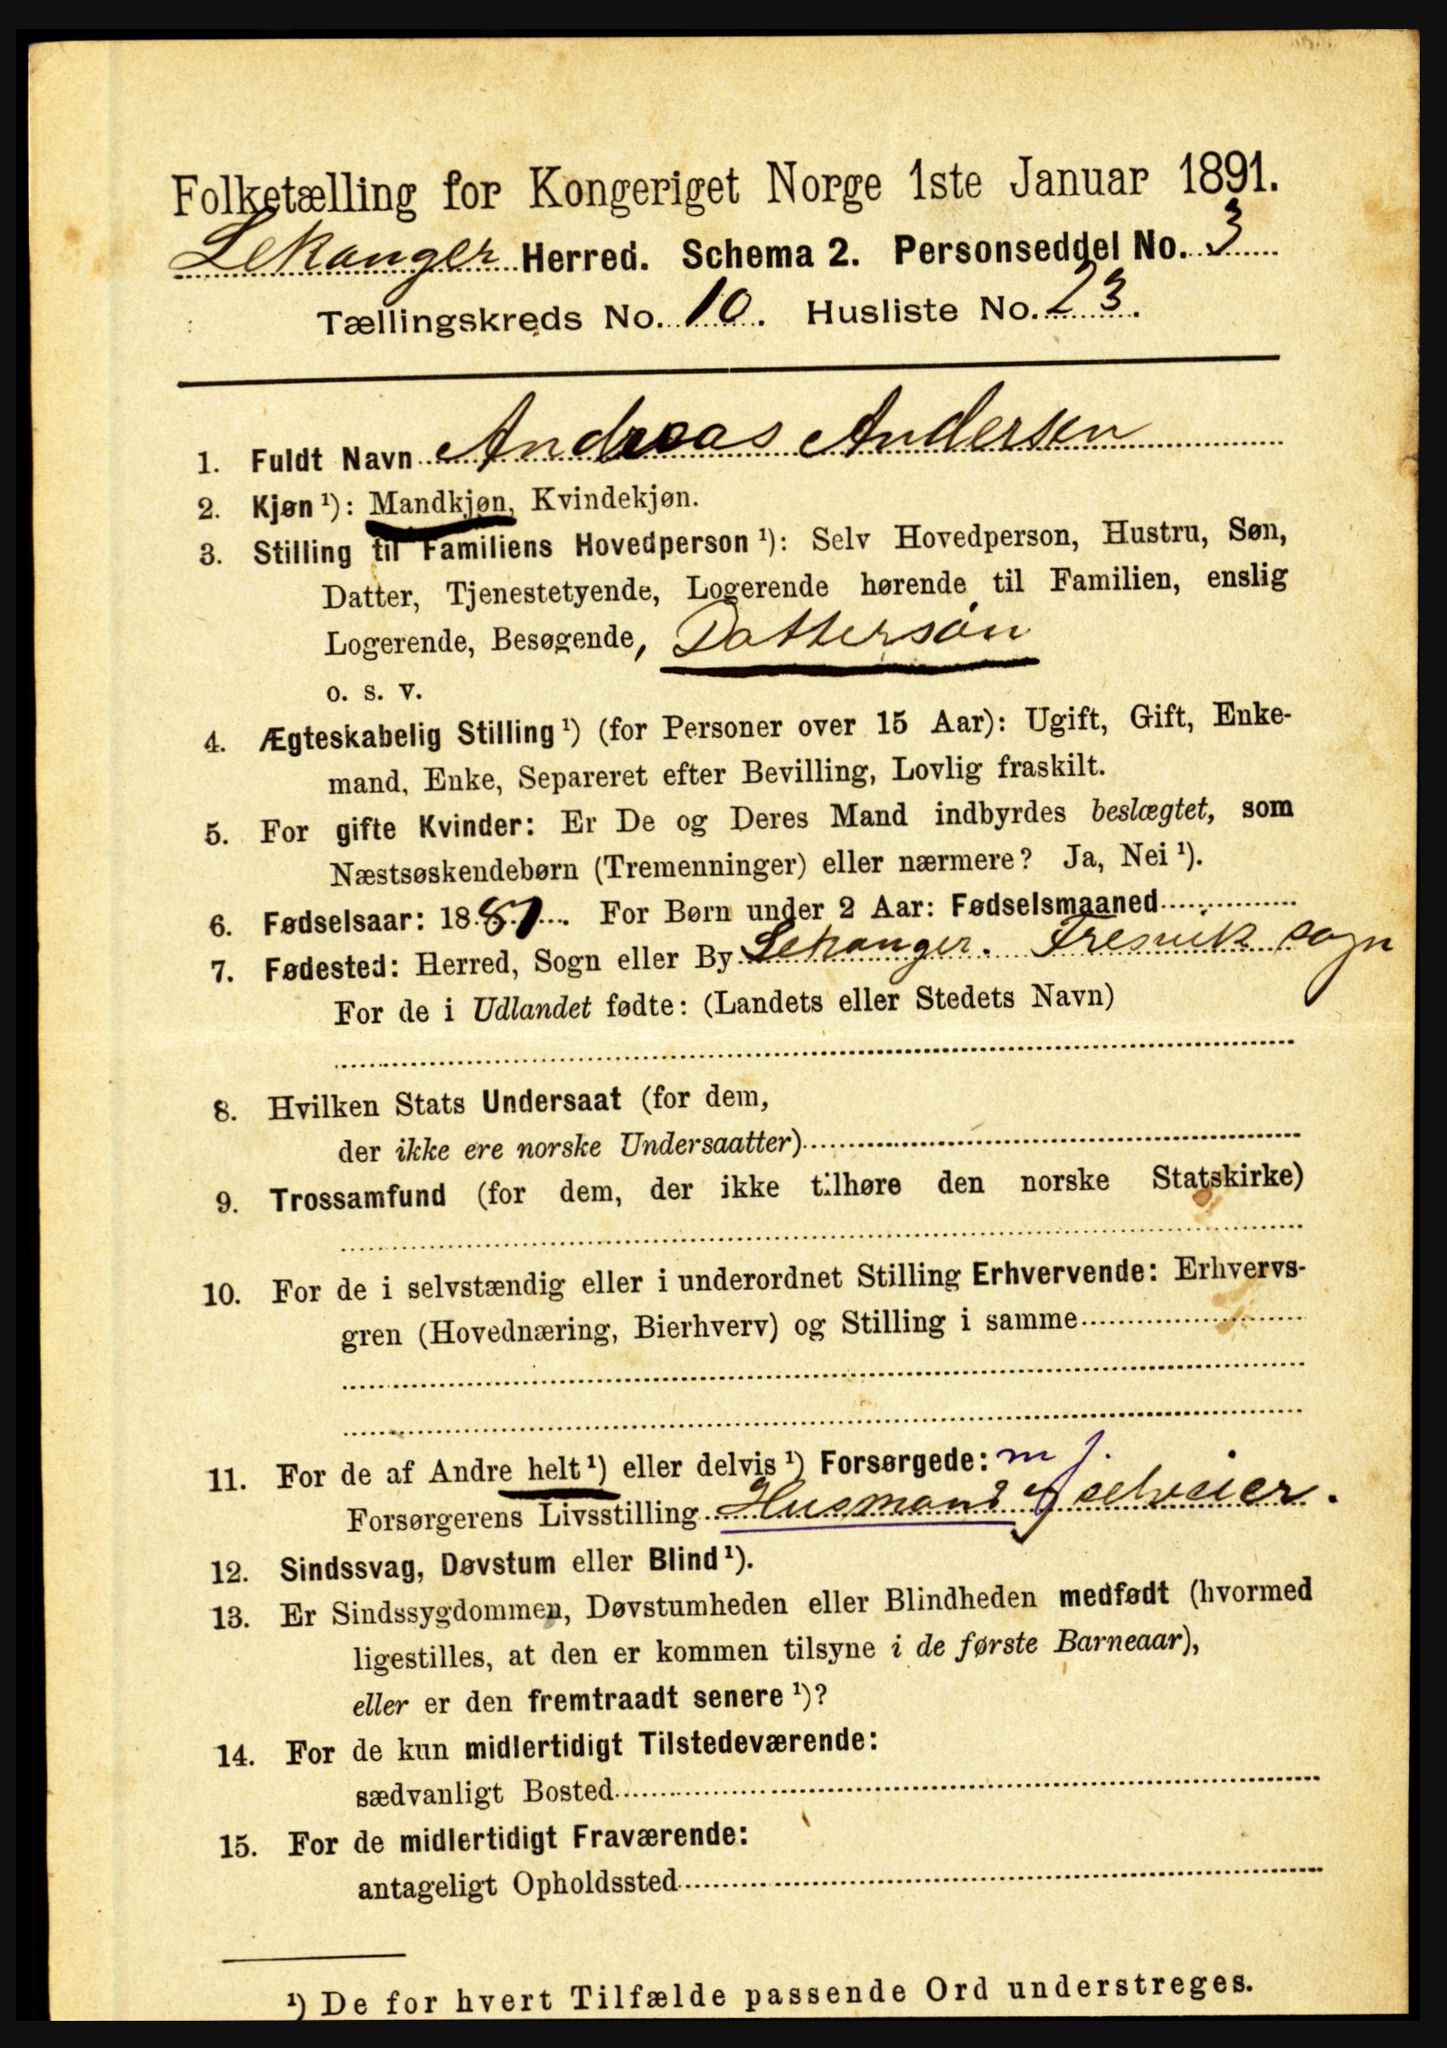 Folketælling for Kongeriget Norge 1ste Januar 1891.
Lekanger Herred. Schema 2. Personseddel No. 3
Tællingskreds No. 10. Husliste No. 23.
1. Fuldt Navn Andreas Andersen
2. Kjøn ¹): Mandkjøn, Kvindekjøn.
3. Stilling til Familiens Hovedperson ¹): Selv Hovedperson, Hustru, Søn,
Datter, Tjenestetyende, Logerende hørende til Familien, enslig
Logerende, Besøgende, Dattersøn
o. s. v.
4. Ægteskabelig Stilling ¹) (for Personer over 15 Aar): Ugift, Gift, Enke-
mand, Enke, Separeret efter Bevilling, Lovlig fraskilt.
5. For gifte Kvinder: Er De og Deres Mand indbyrdes beslægtet, som
Næstsøskendebørn (Tremenninger) eller nærmere? Ja, Nei ¹).
6. Fødselsaar: 1881. For Børn under 2 Aar: Fødselsmaaned
7. Fødested: Herred, Sogn eller By Lekanger. Fresvik sogn
For de i Udlandet fødte: (Landets eller Stedets Navn)
8. Hvilken Stats Undersaat (for dem,
der ikke ere norske Undersaatter)
9. Trossamfund (for dem, der ikke tilhøre den norske Statskirke)
10. For de i selvstændig eller i underordnet Stilling Erhvervende: Erhvervs-
gren (Hovednæring, Bierhverv) og Stilling i samme
11. For de af Andre helt ¹) eller delvis ¹) Forsørgede: m j.
Forsørgerens Livsstilling Husmand selveier.
12. Sindssvag, Døvstum eller Blind ¹).
13. Er Sindssygdommen, Døvstumheden eller Blindheden medfødt (hvormed
ligestilles, at den er kommen tilsyne i de første Barneaar),
eller er den fremtraadt senere ¹)?
14. For de kun midlertidigt Tilstedeværende:
sædvanligt Bosted
15. For de midlertidigt Fraværende:
antageligt Opholdssted
¹) De for hvert Tilfælde passende Ord understreges.